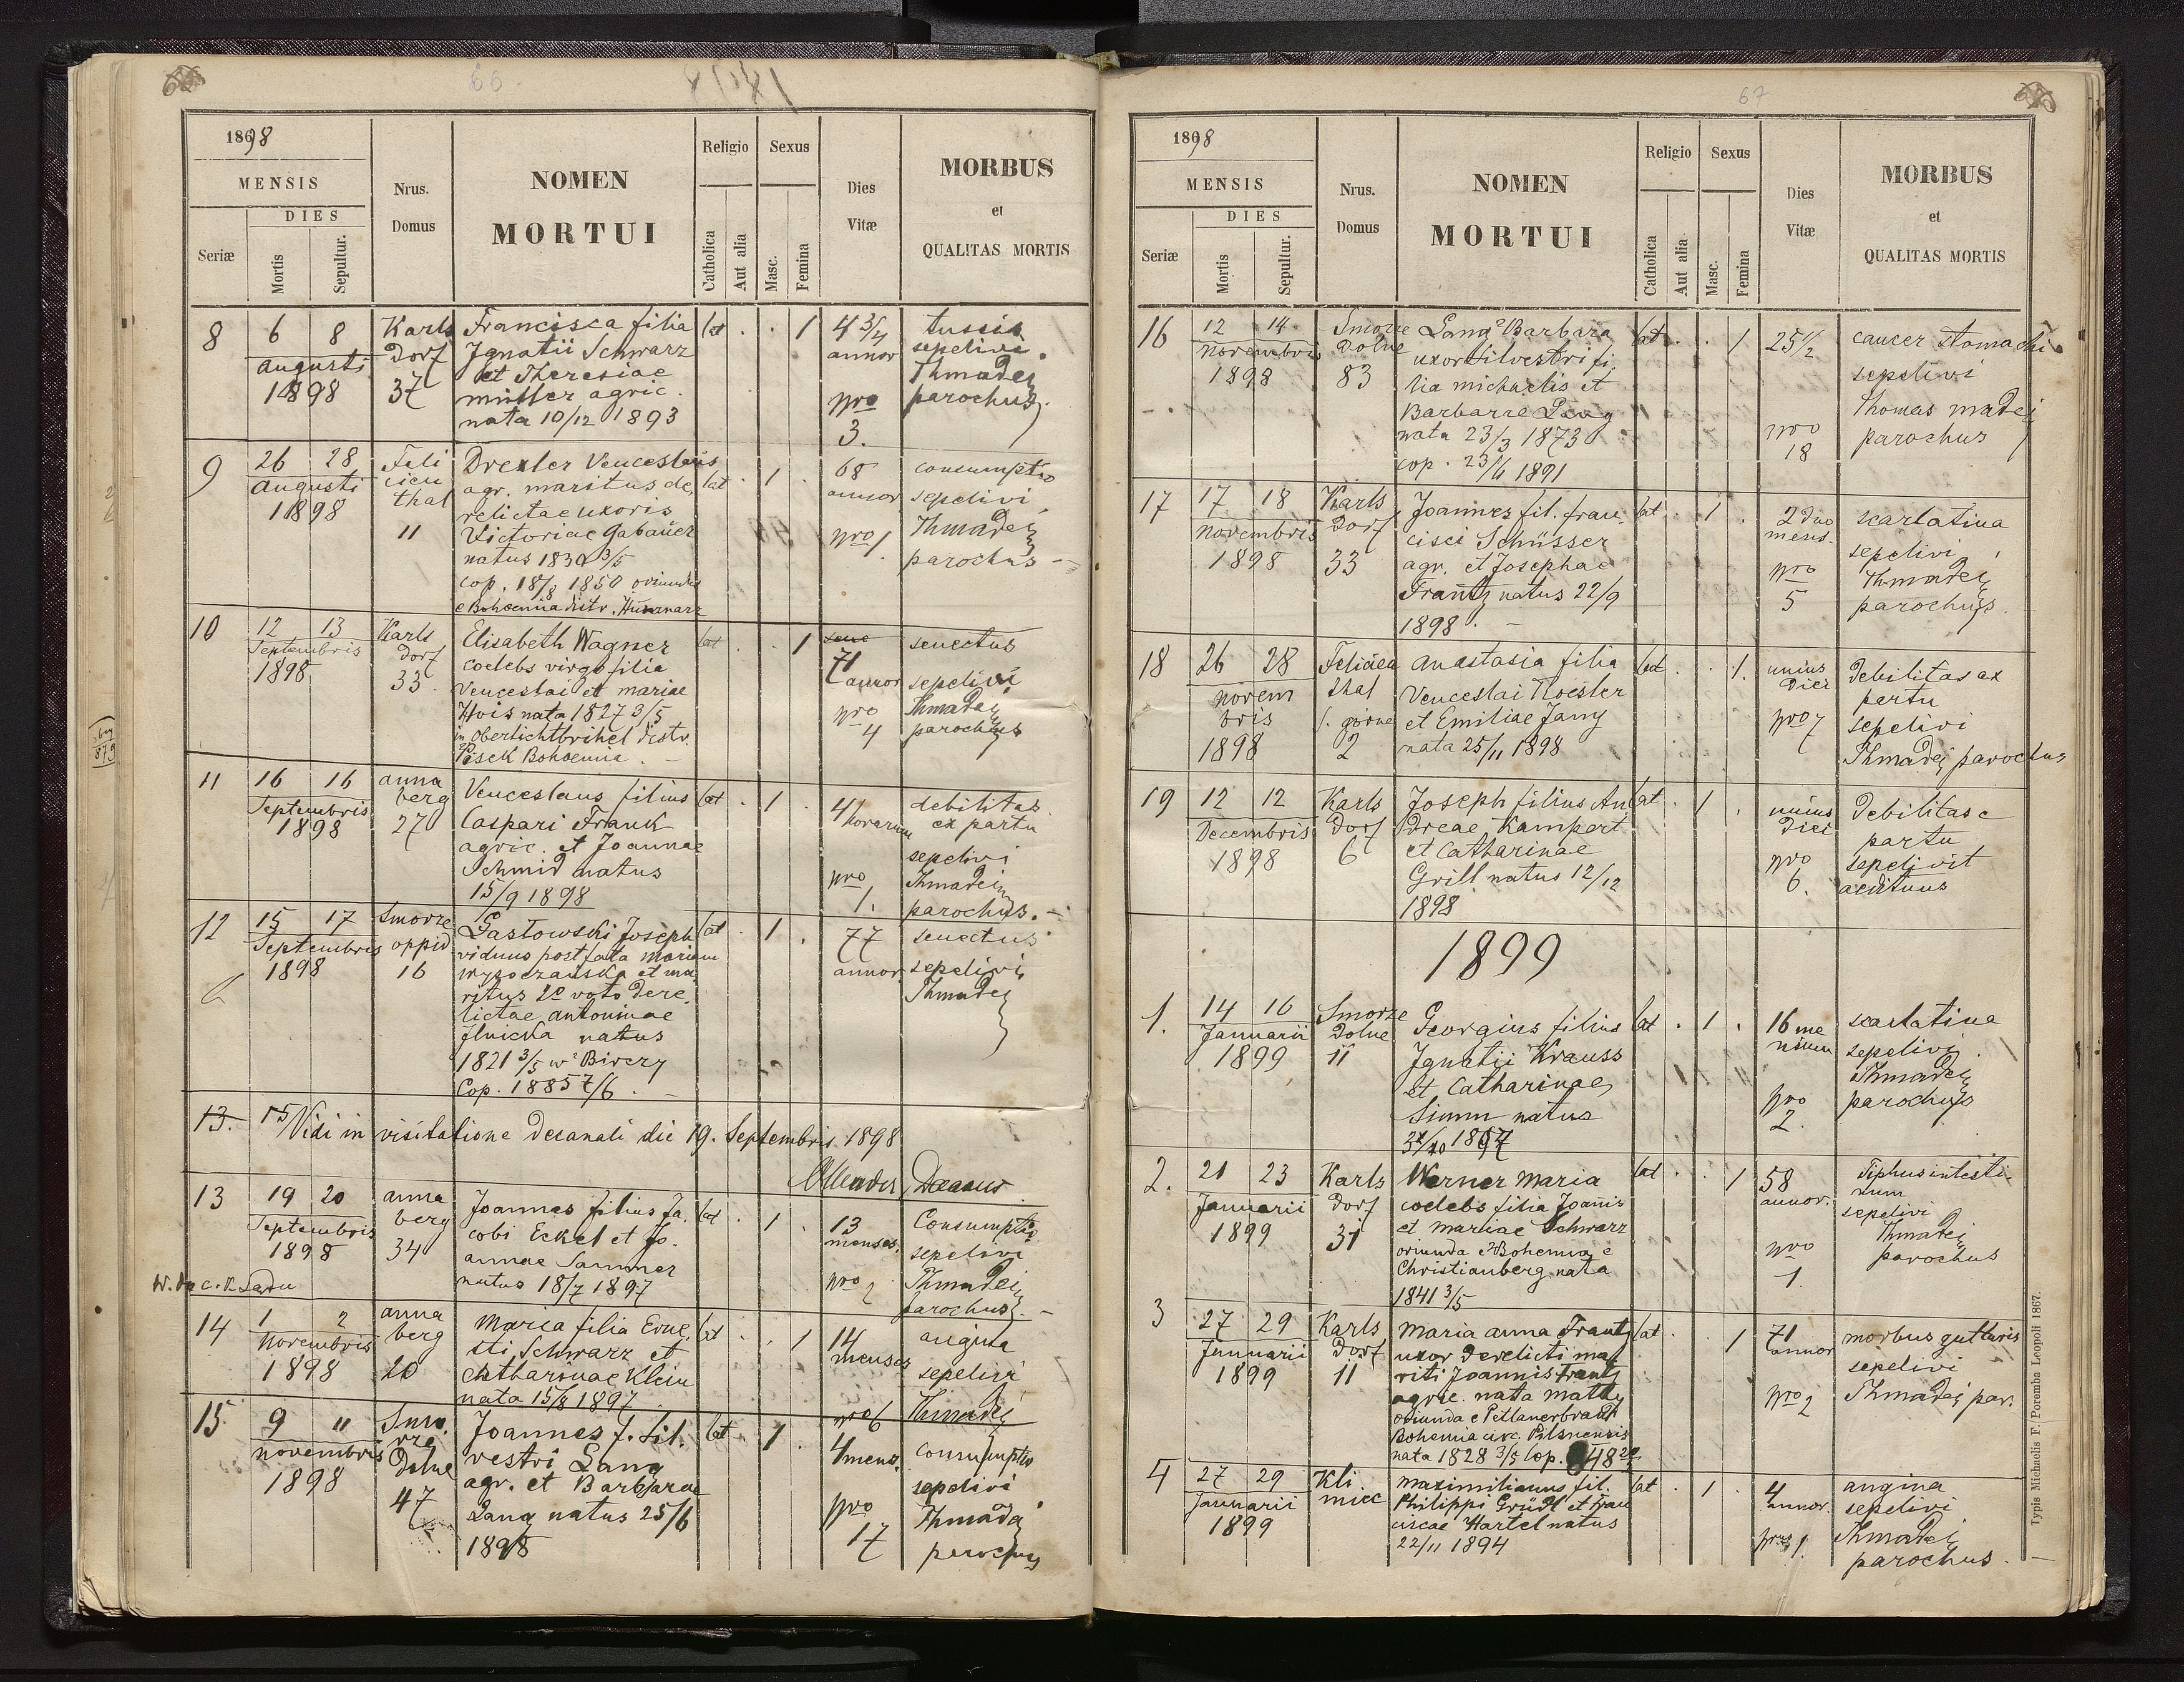 66
1898
MENSIS
DIES
Seriæ
Mortis
Sepultur.
Nrus.
Domus
NOMEN
MORTUI
Religio
Catholica
Aut alia
Sexus
Masc.
Femina
Dies
Vitæ
MORBUS
et
QUALITAS MORTIS
8
6 8
Augusti
1898
Karls
dorf
37
Francisca filia
Ignatii Schwarz
et Theresiae
Müller agric.
nata 10/12 1893
lat . . 1
4 3/4
annor
nro
3.
tussis
sepelivi
Thmadej
parochus.
9
26 28
Augusti
1898
Feli
cien
thal
11
Drexler Venceslaus
agr. maritus de,
relictae uxoris
Victoriae Gabauer
natus 1830 3/5
cop. 18/8 1850 oriundus
e Bohoemia distr.
lat . 1 .
68
annor
nro 1.
consumptio
sepelivi
Thmadej
parochus -
10
12 13
Septembris
1898
Karls
dorf
33
Elisabeth Wagner
coelebs virgo filia
Venceslai et mariae
Hois nata 1827 3/5
in Oberlichtbrihel distr.
Pisek Bohoemia . -
lat . . 1
71
annor
nro
4
senectus
sepelivi
Thmadej
parochus
11
16 16
Septembris
1898
anna
berg
27
Venceslaus filius
Caspari Frank
agric. et Joannae
Schmid natus
15/9 1898
lat . 1 .
4
horarum
nro
1.
debilitas
ex partu
sepelivi
Thmadej
parochus. -
12
15 17
Septembris
1898
Smorze
oppid
16
Gastowski Joseph
viduus post fata Mariam
wysoczańska et ma
ritus 2o voto dere,
lictae antoninae
Ilnicka natus
1821 3/5 w Birczy
Cop. 1885 7/6 . -
lat . 1 .
77
annor
senectus
sepelivi
Thmadej
13. 15
Vidi in visitatione decanali die 19. Septembris 1898
Decanus
13
19 20
Septembris
1898
anna
berg
34
Joannes filius Ja,
cobi Eckel et Jo.
annae Sammer
natus 18/7 1897
lat . 1 .
13
menses.
nro 2
Consumptio
sepelivi
Thmadej
parochus. -
14
1 2
Novembris
1898
anna
berg
20
Maria filia Erne,
sti Schwarz et
Catharinae Klein
nata 15/8 1897
lat . . 1
14
menses
nro 6
angina
sepelivi
Thmadej
15
9 11
Novembris
1898
Smo
rze
Dolne
47
Joannes f. Sil.
vestri Lang
agr. et Barbarae
Lang natus 25/6
1898
lat . 1 .
4 mens.
nro
17
consumptio
sepelivi
Thmadej
parochus
67
1898
MENSIS
DIES
Seriæ
Mortis
Sepultur.
Nrus.
Domus
NOMEN
MORTUI
Religio
Catholica
Aut alia
Sexus
Masc.
Femina
Dies
Vitæ
MORBUS
et
QUALITAS MORTIS
16
12 14
Novembris
1898
Smorze
Dolne
83
Lang Barbara
uxor Silvestri fi,
lia michaelis et
Barbarae Lang
nata 23/3 1873
cop. 23/6 1891
lat . . 1
25 1/2
nro
18
cancer stomachi
sepelivi
Thomas madej
parochus
17
17 18
Novembris
1898
Karls
Dorf
33
Joannes fil. fran,
cisci Schüsser
agr. et Josephae
Frantz natus 22/9
1898 . -
lat . 1 .
2 duo
mens.
nro
5
scarlatina
sepelivi
Thmadej
parochus.
18
26 28
Novem
bris
1898
Felicien
thal
f. górne
2
Anastasia filia
Venceslai Hoesler
et Emiliae Jany
nata 25/11 1898
lat . . 1.
unius
Diei
nro 7
Debilitas ex
partu
sepelivi
Thmadej parochus
19
12 12
Decembris
1898
Karls
Dorf
6
Joseph filius An
dreae Kampert
et Catharinae
Grill natus 12/12
1898
lat . 1 .
unius
Diei
nro
6.
Debilitas e
partu
sepelivit
aedituus
1899
1.
14 16
Januarii
1899
Smorze
Dolne
11
Georgius filius
Ignatii Krauss
et Catharinae
Simm natus
1897
lat . 1 .
16 me
nsium
nro
2.
scarlatina
sepelivi
Thmadej
parochus
2.
21 23
Januarii
1899
Karls
dorf
31
Werner Maria
coelebs filia Joanis
et Mariae Schwarz
oriunda e Bohemia e
Christianberg nata
1841 3/5
lat . . 1
58
annor.
nro
1.
Tiphus intesti-
num
sepelivi
Thmadej
parochus
3
27 29
Januarii
1899
Karls
Dorf
11
Maria anna Frantz
uxor derelicti ma
riti Joannis Frantz
agric. nata
oriunda e
Bohemia circ. Pilsnensis
nata 1828 3/5 Cop.
lat . . 1
71
annor
nro 2
morbus gutturis
sepelivi
Thmadej par.
4
27 29
Januarii
1899
Kli.
miec
Maximilianus fil.
Philippi Gründl et Fran
ciscae Hartel natus
22/11 1894
lat . 1 .
4
annor.
nrus 1.
angina
sepelivi
Thmadej
parochus. -
Typis Michaelis F. Poremba Leopoli 1867.